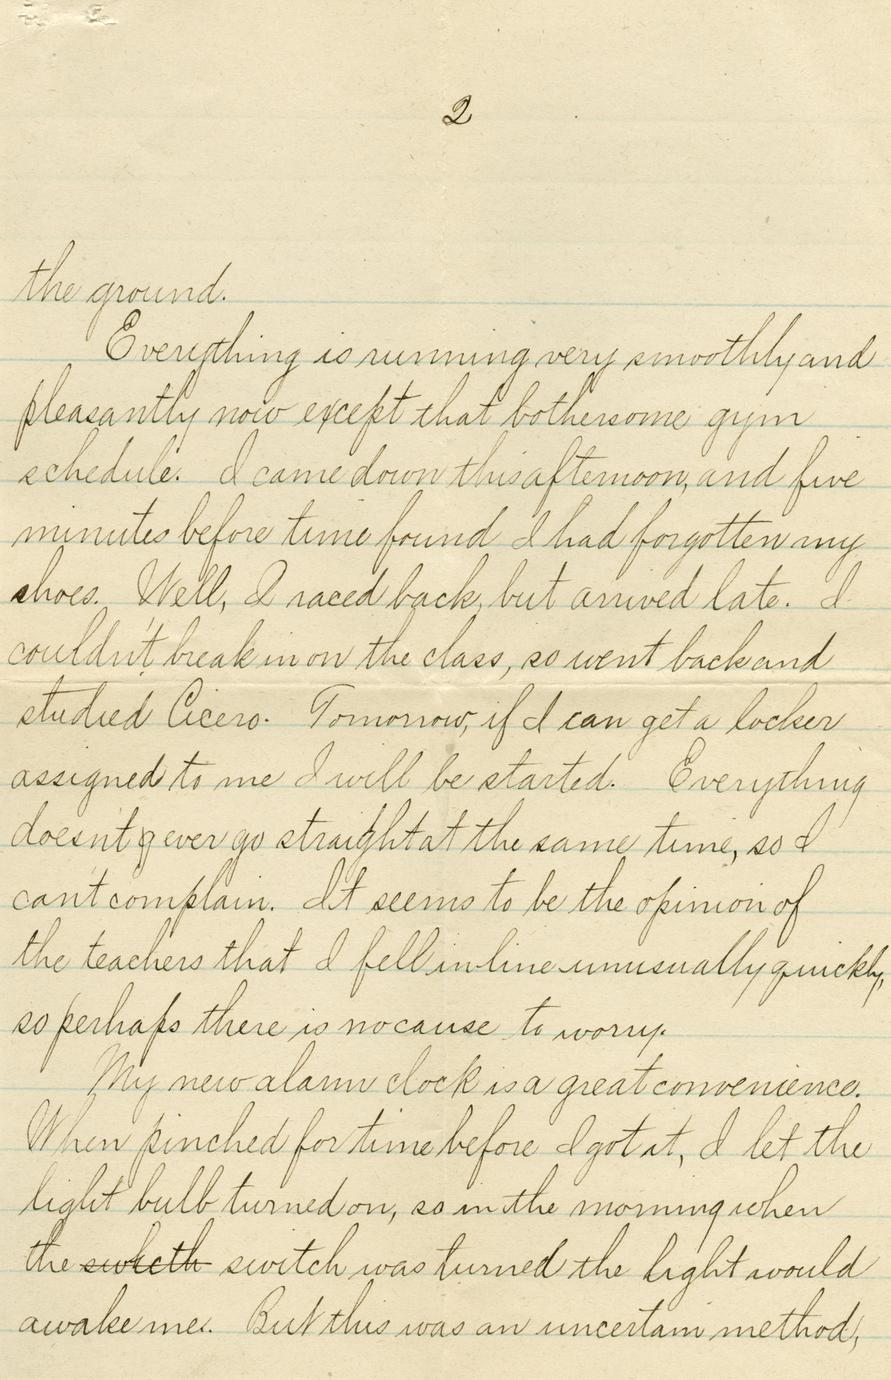 2
the ground.
Everything is running very smoothly and
pleasantly now except that bothersome gym
schedule. I came down this afternoon, and five
minutes before time found I had forgotten my
shoes. Well, I raced back, but arrived late. I
couldn't break in on the class, so went back and
studied Cicero. Tomorrow, if I can get a locker
assigned to me I will be started. Everything
doesn't ever go straight at the same time, so I
can't complain. It seems to be the opinion of
the teachers that I fell in line unusually quickly,
so perhaps there is no cause to worry.
My new alarm clock is a great convenience.
When pinched for time before I got it, I let the
light bulb turned on, so in the morning when
the switch was turned the light would
awake me. But this was an uncertain method,